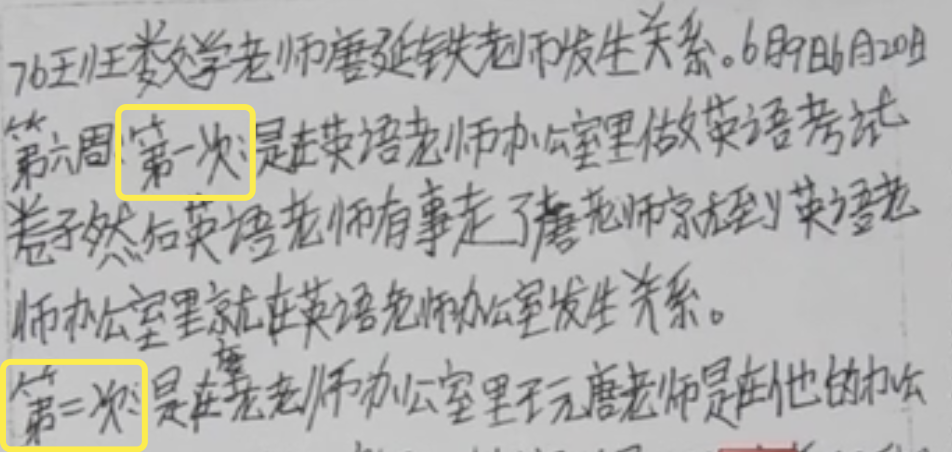 76王旺数学老师唐延铁老师发生关系。6月9日6月20日
第六周:第一次:是在英语老师办公室里做英语考试
卷子然后英语老师有事走了唐老师就到英语老
师办公室里就在英语老师办公室发生关系。
第二次:是在唐老师办公室里唐老师是在他的办公